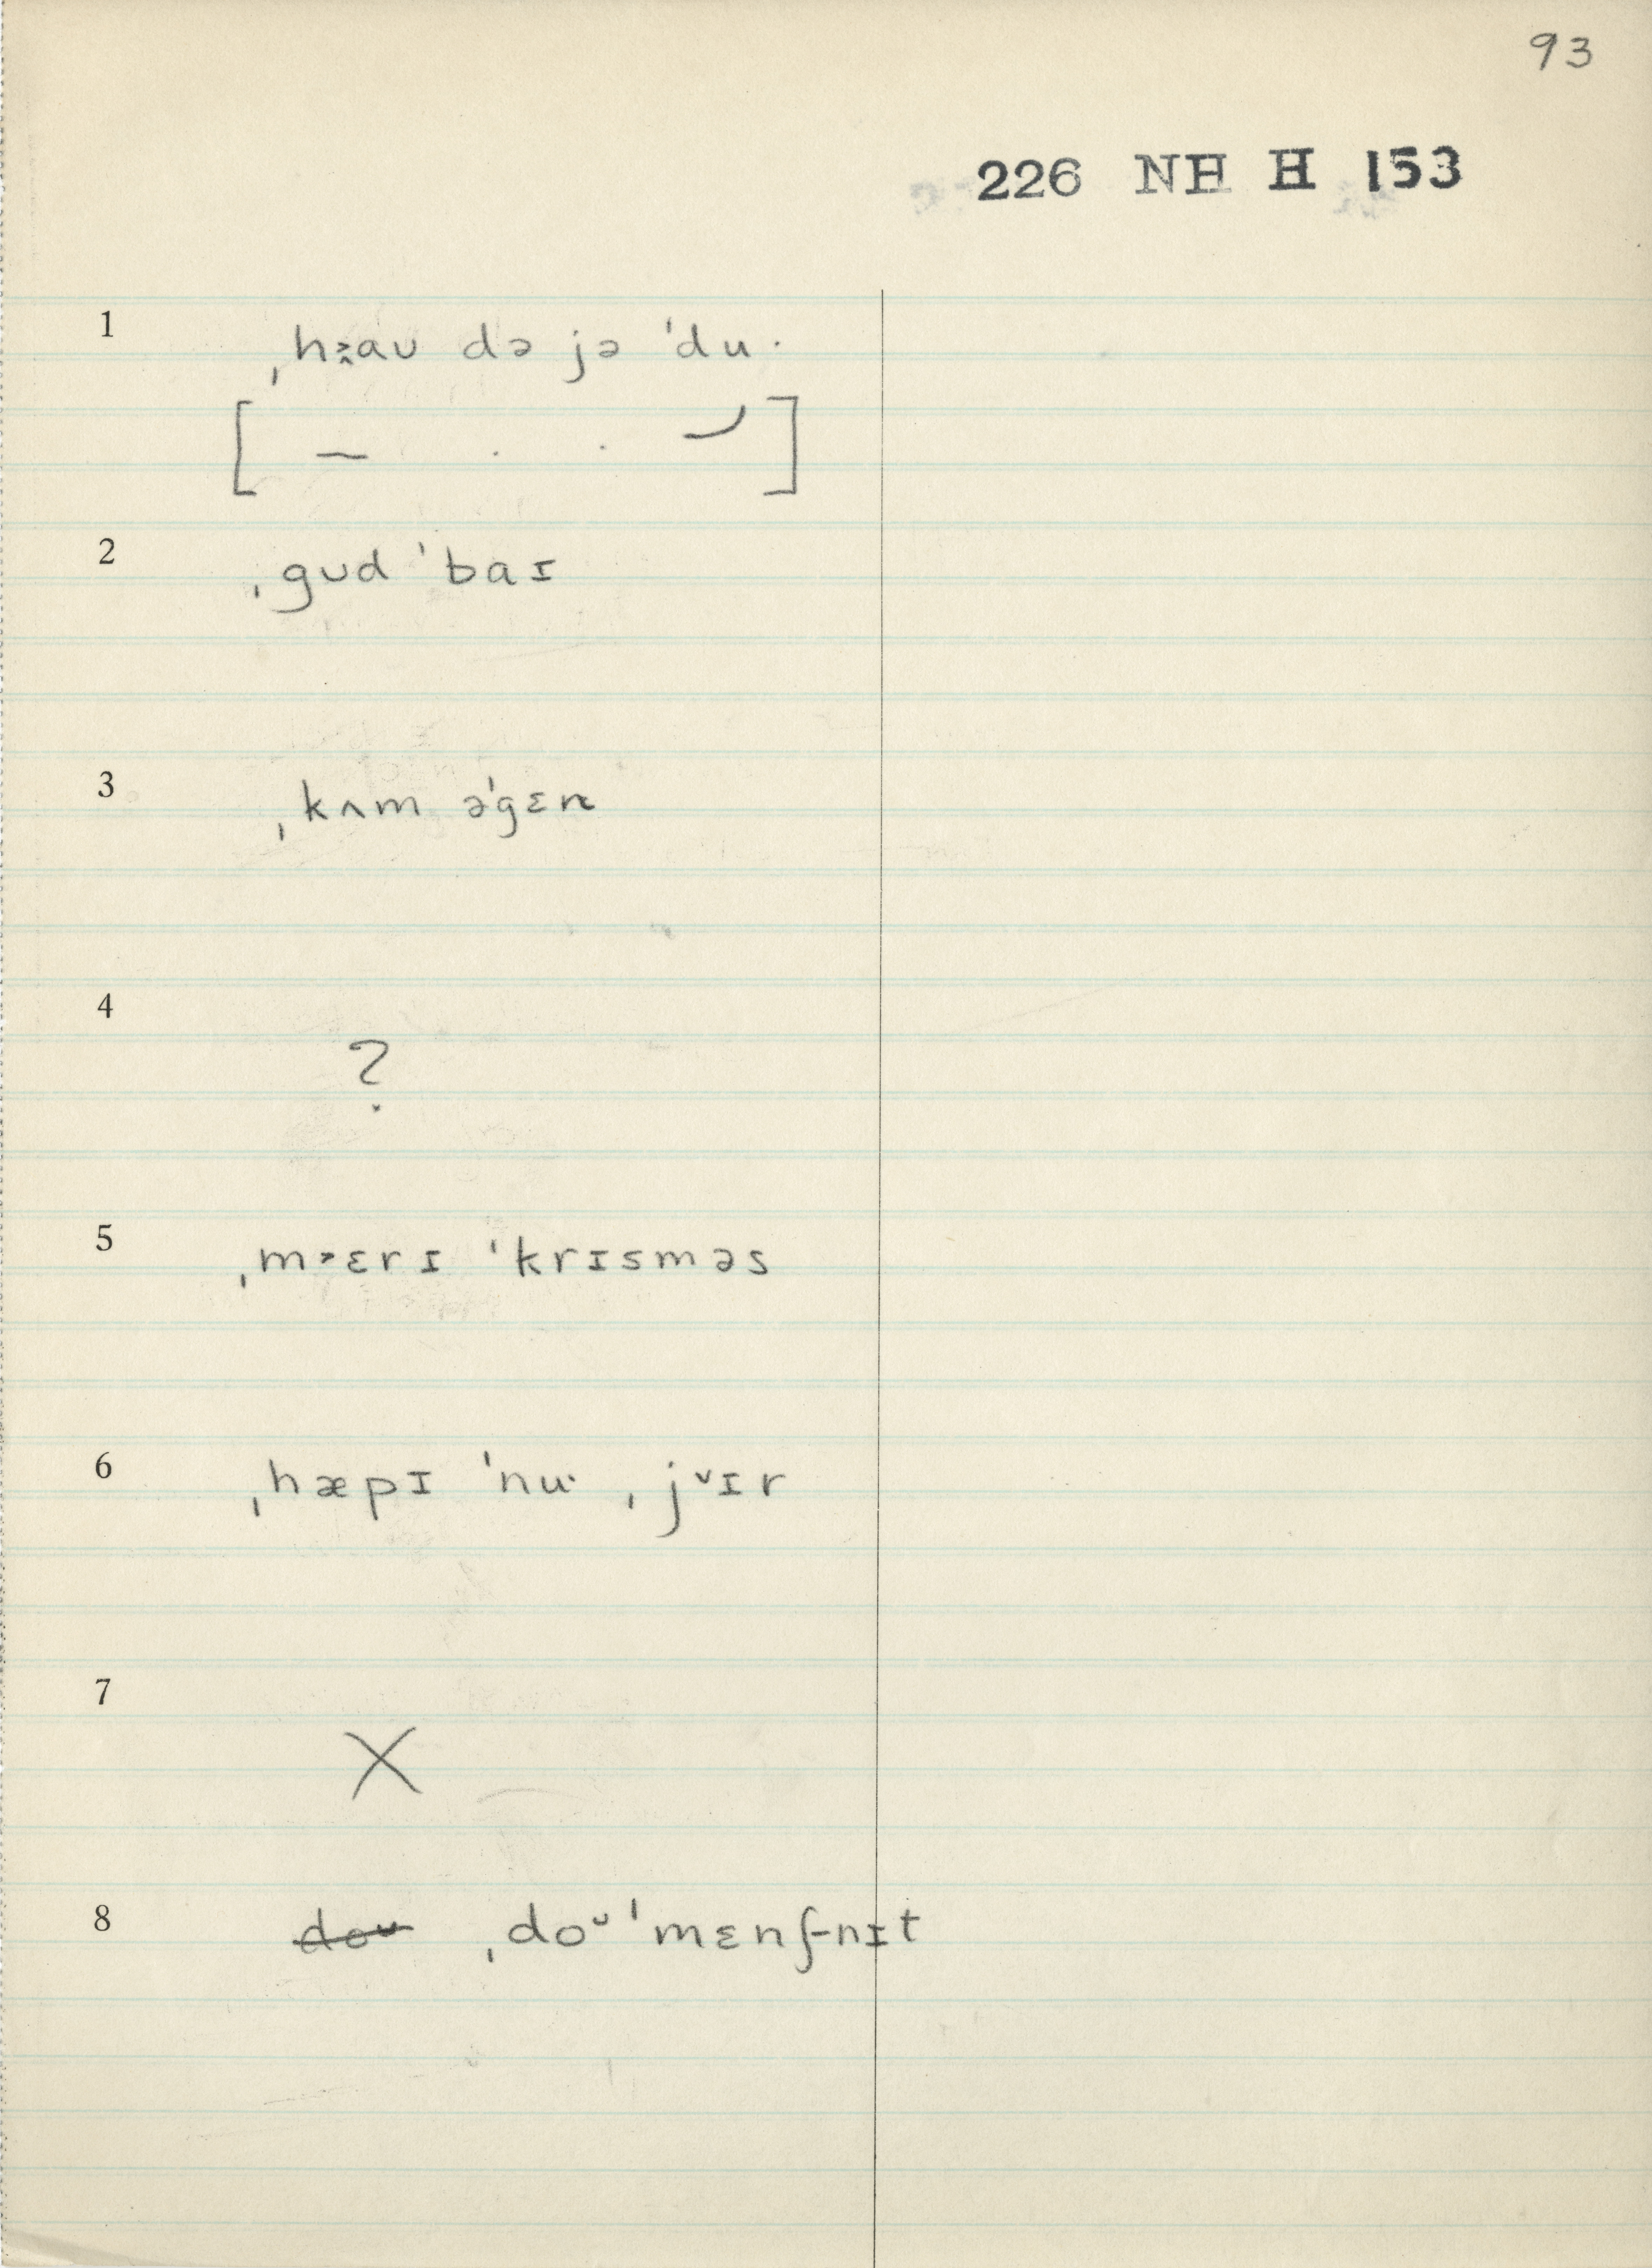 93
226 NH H 153
1
ˌhɜ˞aʊ də jə ˈdu·
2
ˌgʊd ˈbaɪ
3
ˌkʌm əˈgɛn
4
?
5
ˌm˃ɛrɪ ˈkrɪsməs
6
ˌhæpɪ ˈnu· ˌj˅ɪr
7
X
8
ˌdoᵘˈmɛnʃnɪt